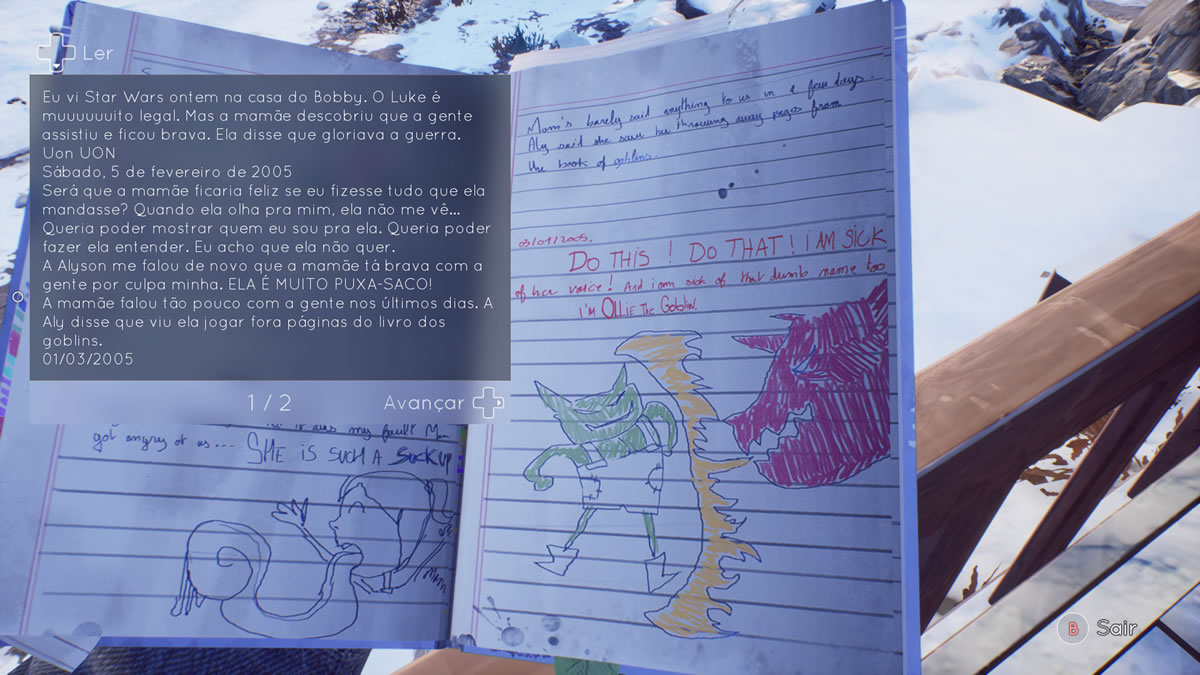 Ler
Eu vi Star Wars ontem na casa do Bobby. O Luke é
muuuuuuito legal. Mas a mamãe descobriu que a gente
assistiu e ficou brava. Ela disse que gloriava a guerra.
Uon UON
Sábado, 5 de fevereiro de 2005
Será que a mamãe ficaria feliz se eu fizesse tudo que ela
mandasse? Quando ela olha pra mim, ela não me vê...
Queria poder mostrar quem eu sou pra ela. Queria poder
fazer ela entender. Eu acho que ela não quer.
A Alyson me falou de novo que a mamãe tá brava com a
gente por culpa minha. ELA É MUITO PUXA-SACO!
A mamãe falou tão pouco com a gente nos últimos dias. A
Aly disse que viu ela jogar fora páginas do livro dos
goblins.
01/03/2005
1 / 2
Avançar
got angry at us... SHE IS SUCH A SUCKUP
Mom
Mom's barely said anything to us in a few days.
Aly said she saw her throwing away pages from
the book of goblins.
03/01/2005.
DO THIS ! DO THAT ! I AM SICK
of her voice! And i am sick of that dumb name too
I'M OLLIE THE GOBLIN.
B Sair